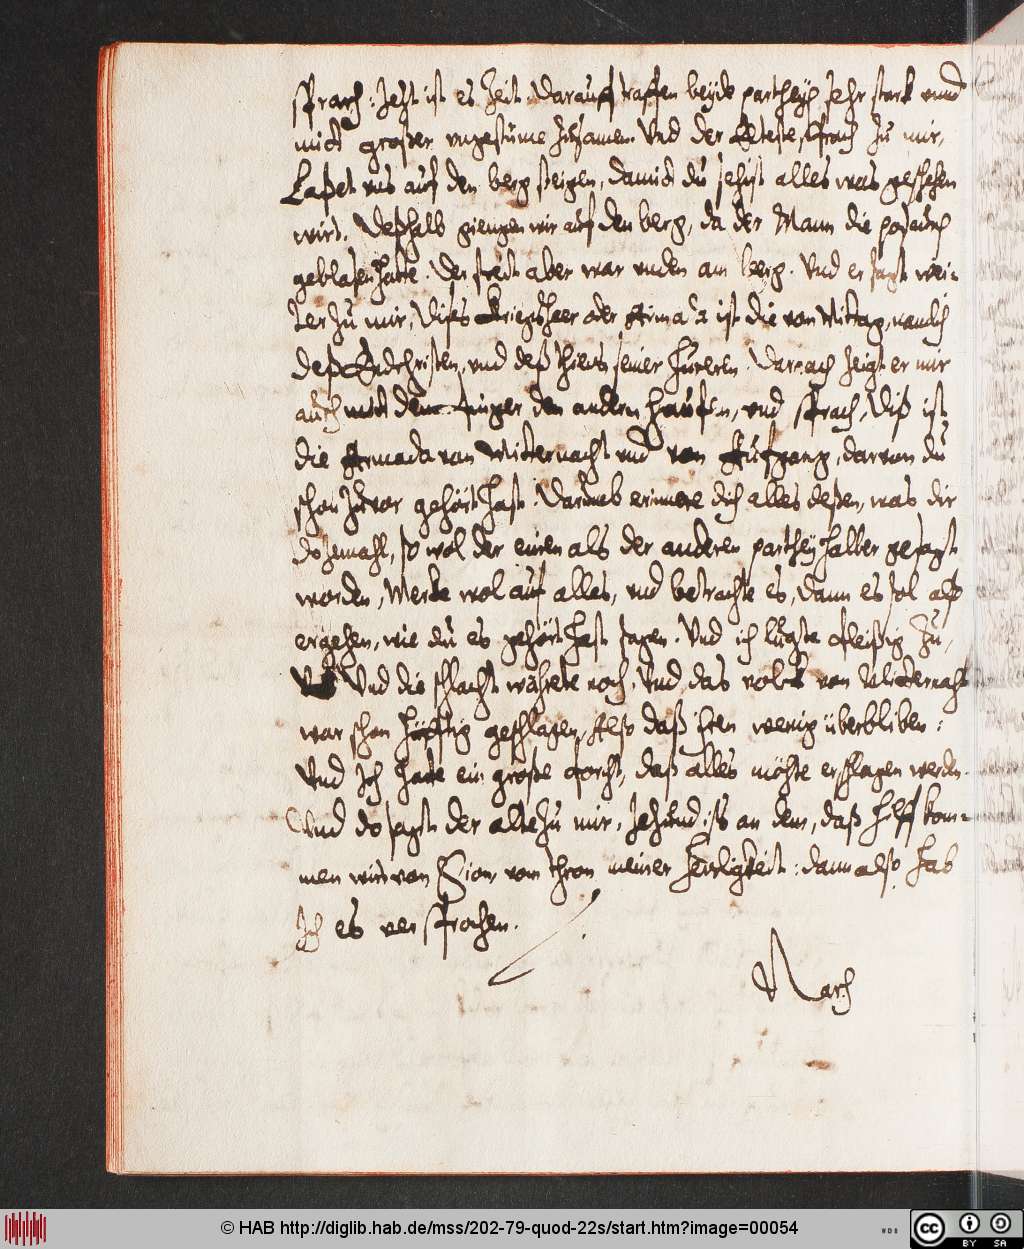 sprach: Jetzt ist es Zeit. Darauff traffen beyde partheyen sehr starck vnnd
mitt grosser vngestüme zusamen. Vnd der Elteste, sprach zu mir,
Laßet vns auf den berg steigen, damitt du sehist alles was geschehen
wirt. Deßhalb giengen wir auf den berg, da der Mann die posaunen
geblasen hatte. Der streit aber war vnden am berg. Vnd er sagt wei-
ter zu mir, Dises Kriegsheer oder Armada ist die von Mittag, namlich
deß Endchristen, vnd deß thiers seiner Hureren. Darnach zeigt er mir
auch mitt dem finger den andern hauffen, vnd sprach, Diß ist
die Armada von Mitternacht vnd von Aufgang, darvon du
schon zuvor gehört hast. Darumb erinnere dich alles deßen, was dir
dozemahl, so wol der einen als der anderen parthey halber gesagt
worden, Merke wol auf alles, vnd betrachte es, dann es sol also
ergehen, wie du es gehört hast sagen. Vnd ich lugte fleißig zu,
Vnd die schlacht währete noch, Vnd das volck von Mitternacht
war schon häfftig geschlagen, Also daß ihren wenig überbliben:
Vnd Ich hatte ein große forcht, daß alles möchte erschlagen werden.
Vnd do sagt der alte zu mir, Jetzund ists an dem, daß hilff kom-
men wirt von Sion, vom thron meiner Herrligkeit: dann also hab
Ich es versprochen.
Nach
© HAB http://diglib.hab.de/mss/202-79-quod-22s/start.htm?image=00054
WDB
cc
BY SA